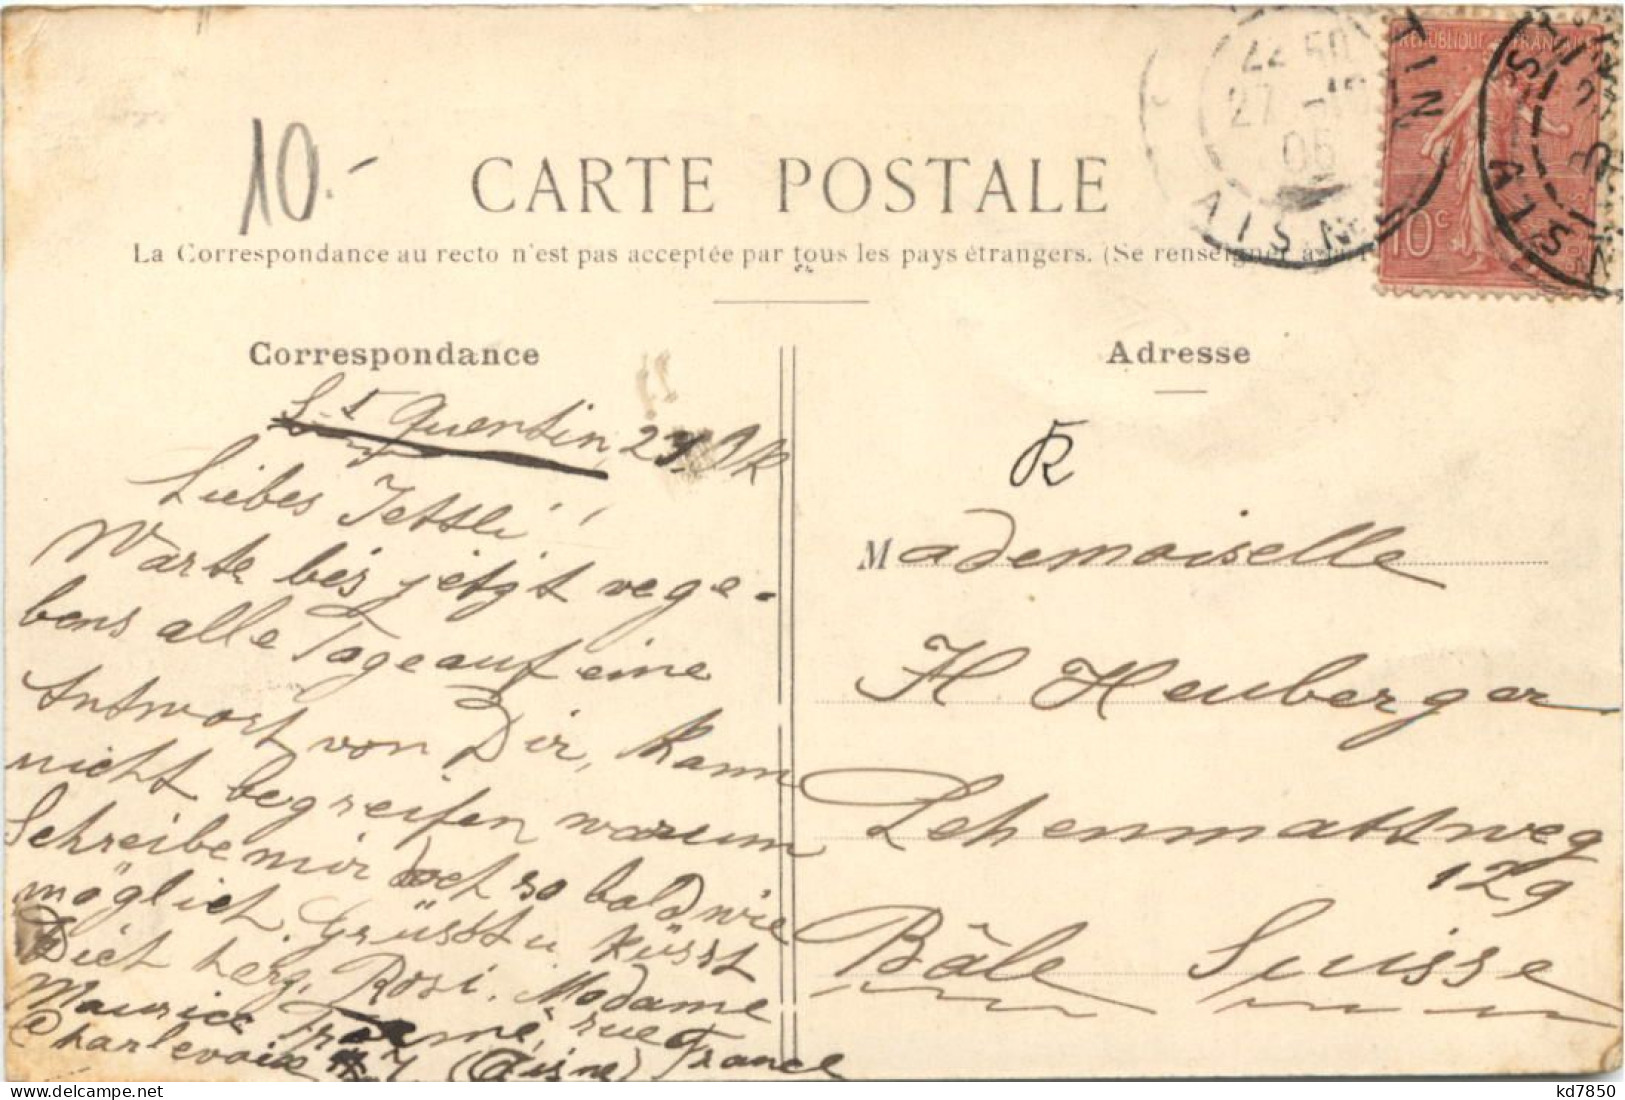 10.-
CARTE POSTALE
La Correspondance au recto n'est pas acceptée par tous les pays étrangers. (Se renseigner à la
Correspondance
Adresse
22 50
27
05
AISNE
TIN
REPUBLIQUE FRANÇAISE
10c
St Quentin, 27.
Liebes Jettli!
Warte bis jetzt verge-
bens alle Tage auf eine
Antwort von Dir, kann
nicht begreifen warum
Schreibe mir doch so bald wie
möglich. Grüsst u küsst
Dich herz. Rosi. Madame
Maurice rue
Charlevoix 7 (Aisne) France
R
Mademoiselle
H Heuberger
Lehenmattweg
129
Bâle Suisse
kd7850